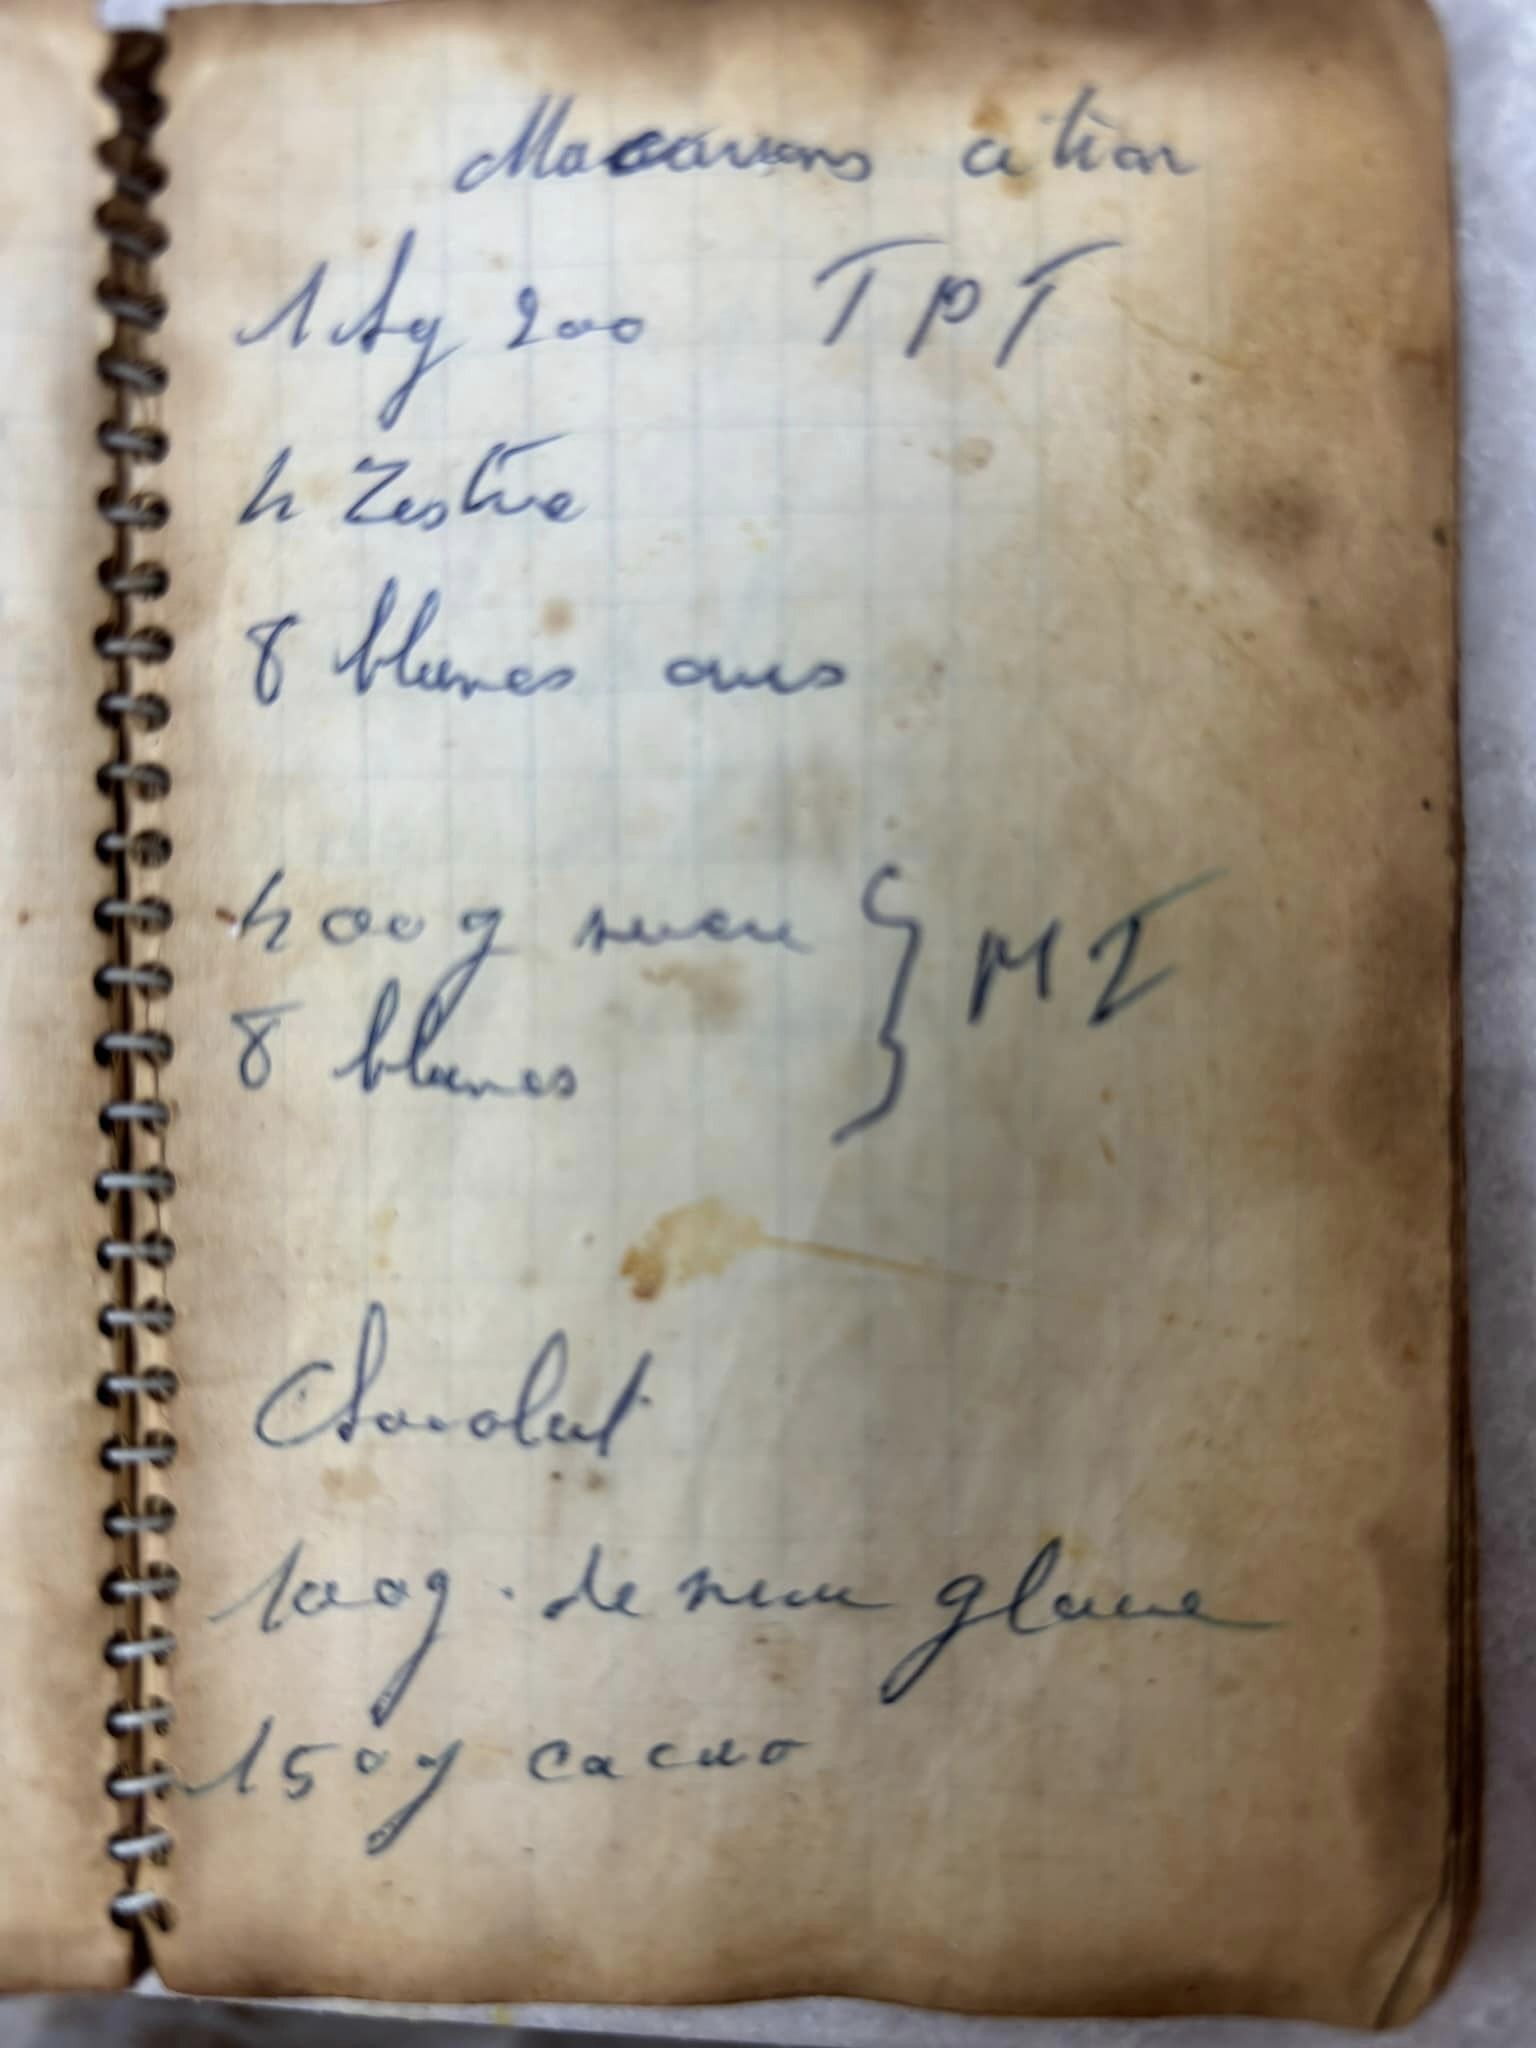 Macarons citron
1 kg 200 TPT
4 Zestre
8 blancs oeufs
400g sucre
8 blancs } MI
Chocolat
100g . de sucre glace
150g cacao